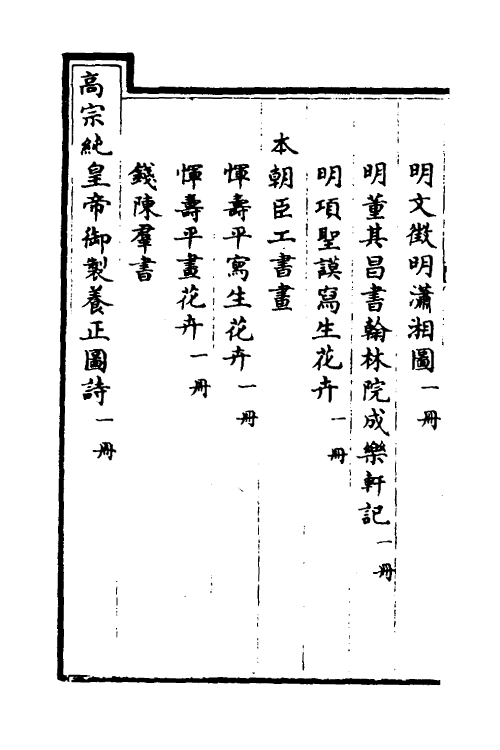 明文徴明瀟湘圖一冊
明董其昌書翰林院成樂軒記一冊
明項聖謨寫生花卉一冊
本朝臣工書畫
惲壽平寫生花卉一冊
惲壽平畫花卉一冊
錢陳羣書
高宗純皇帝御製養正圖詩一冊